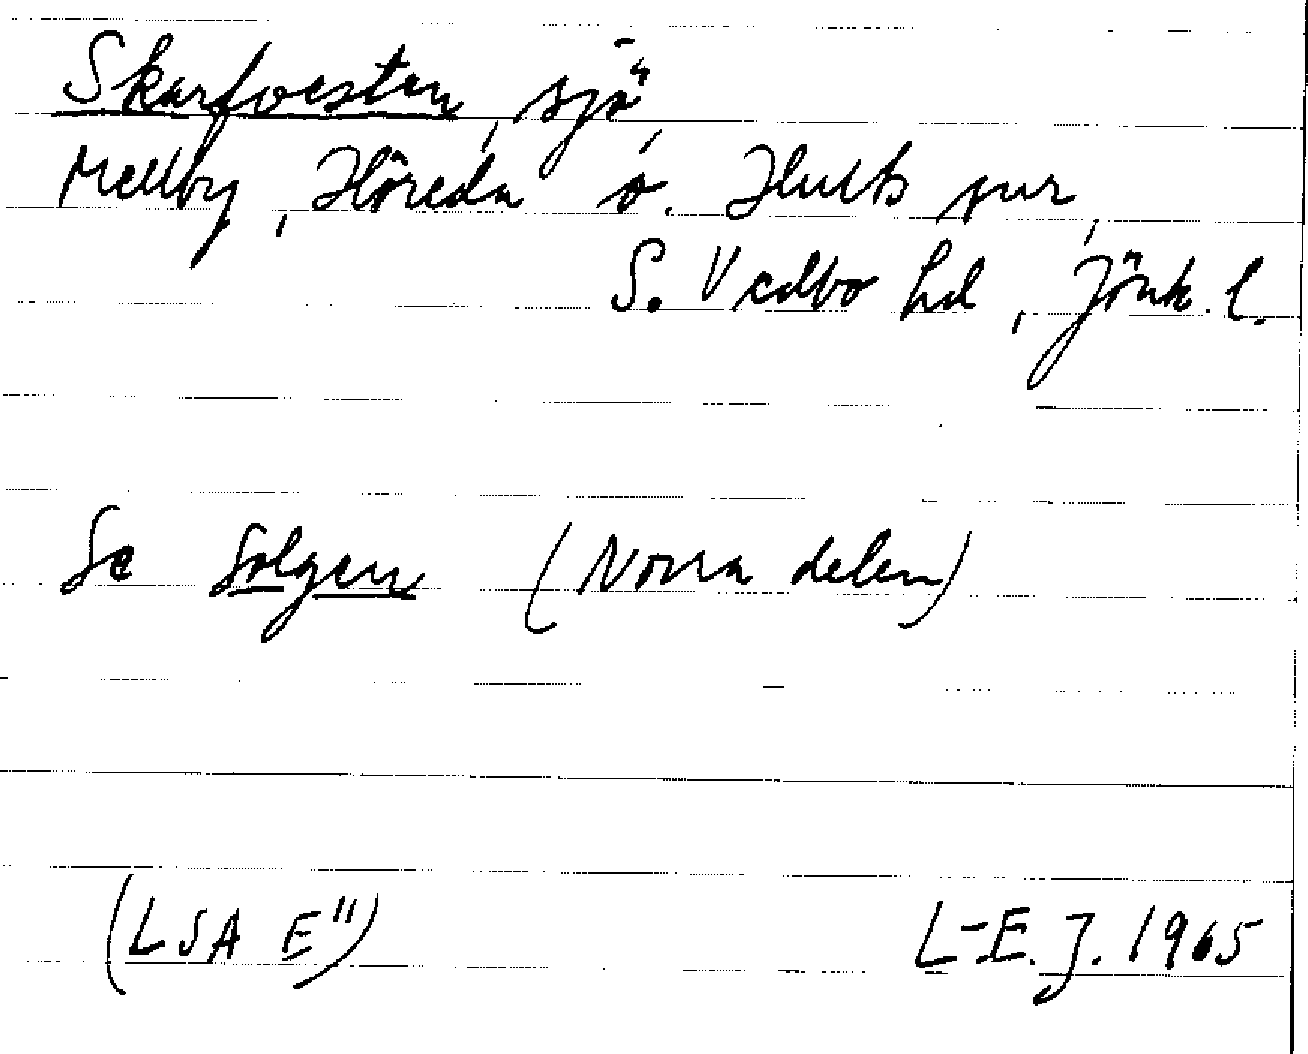 Skarfvesten, sjö
Mellby, Höreda o. Hults snr,
S. Vedbo hd, Jönk. l.
Se Solgen (Norra delen)
(LSA E")
L-E. J. 1965